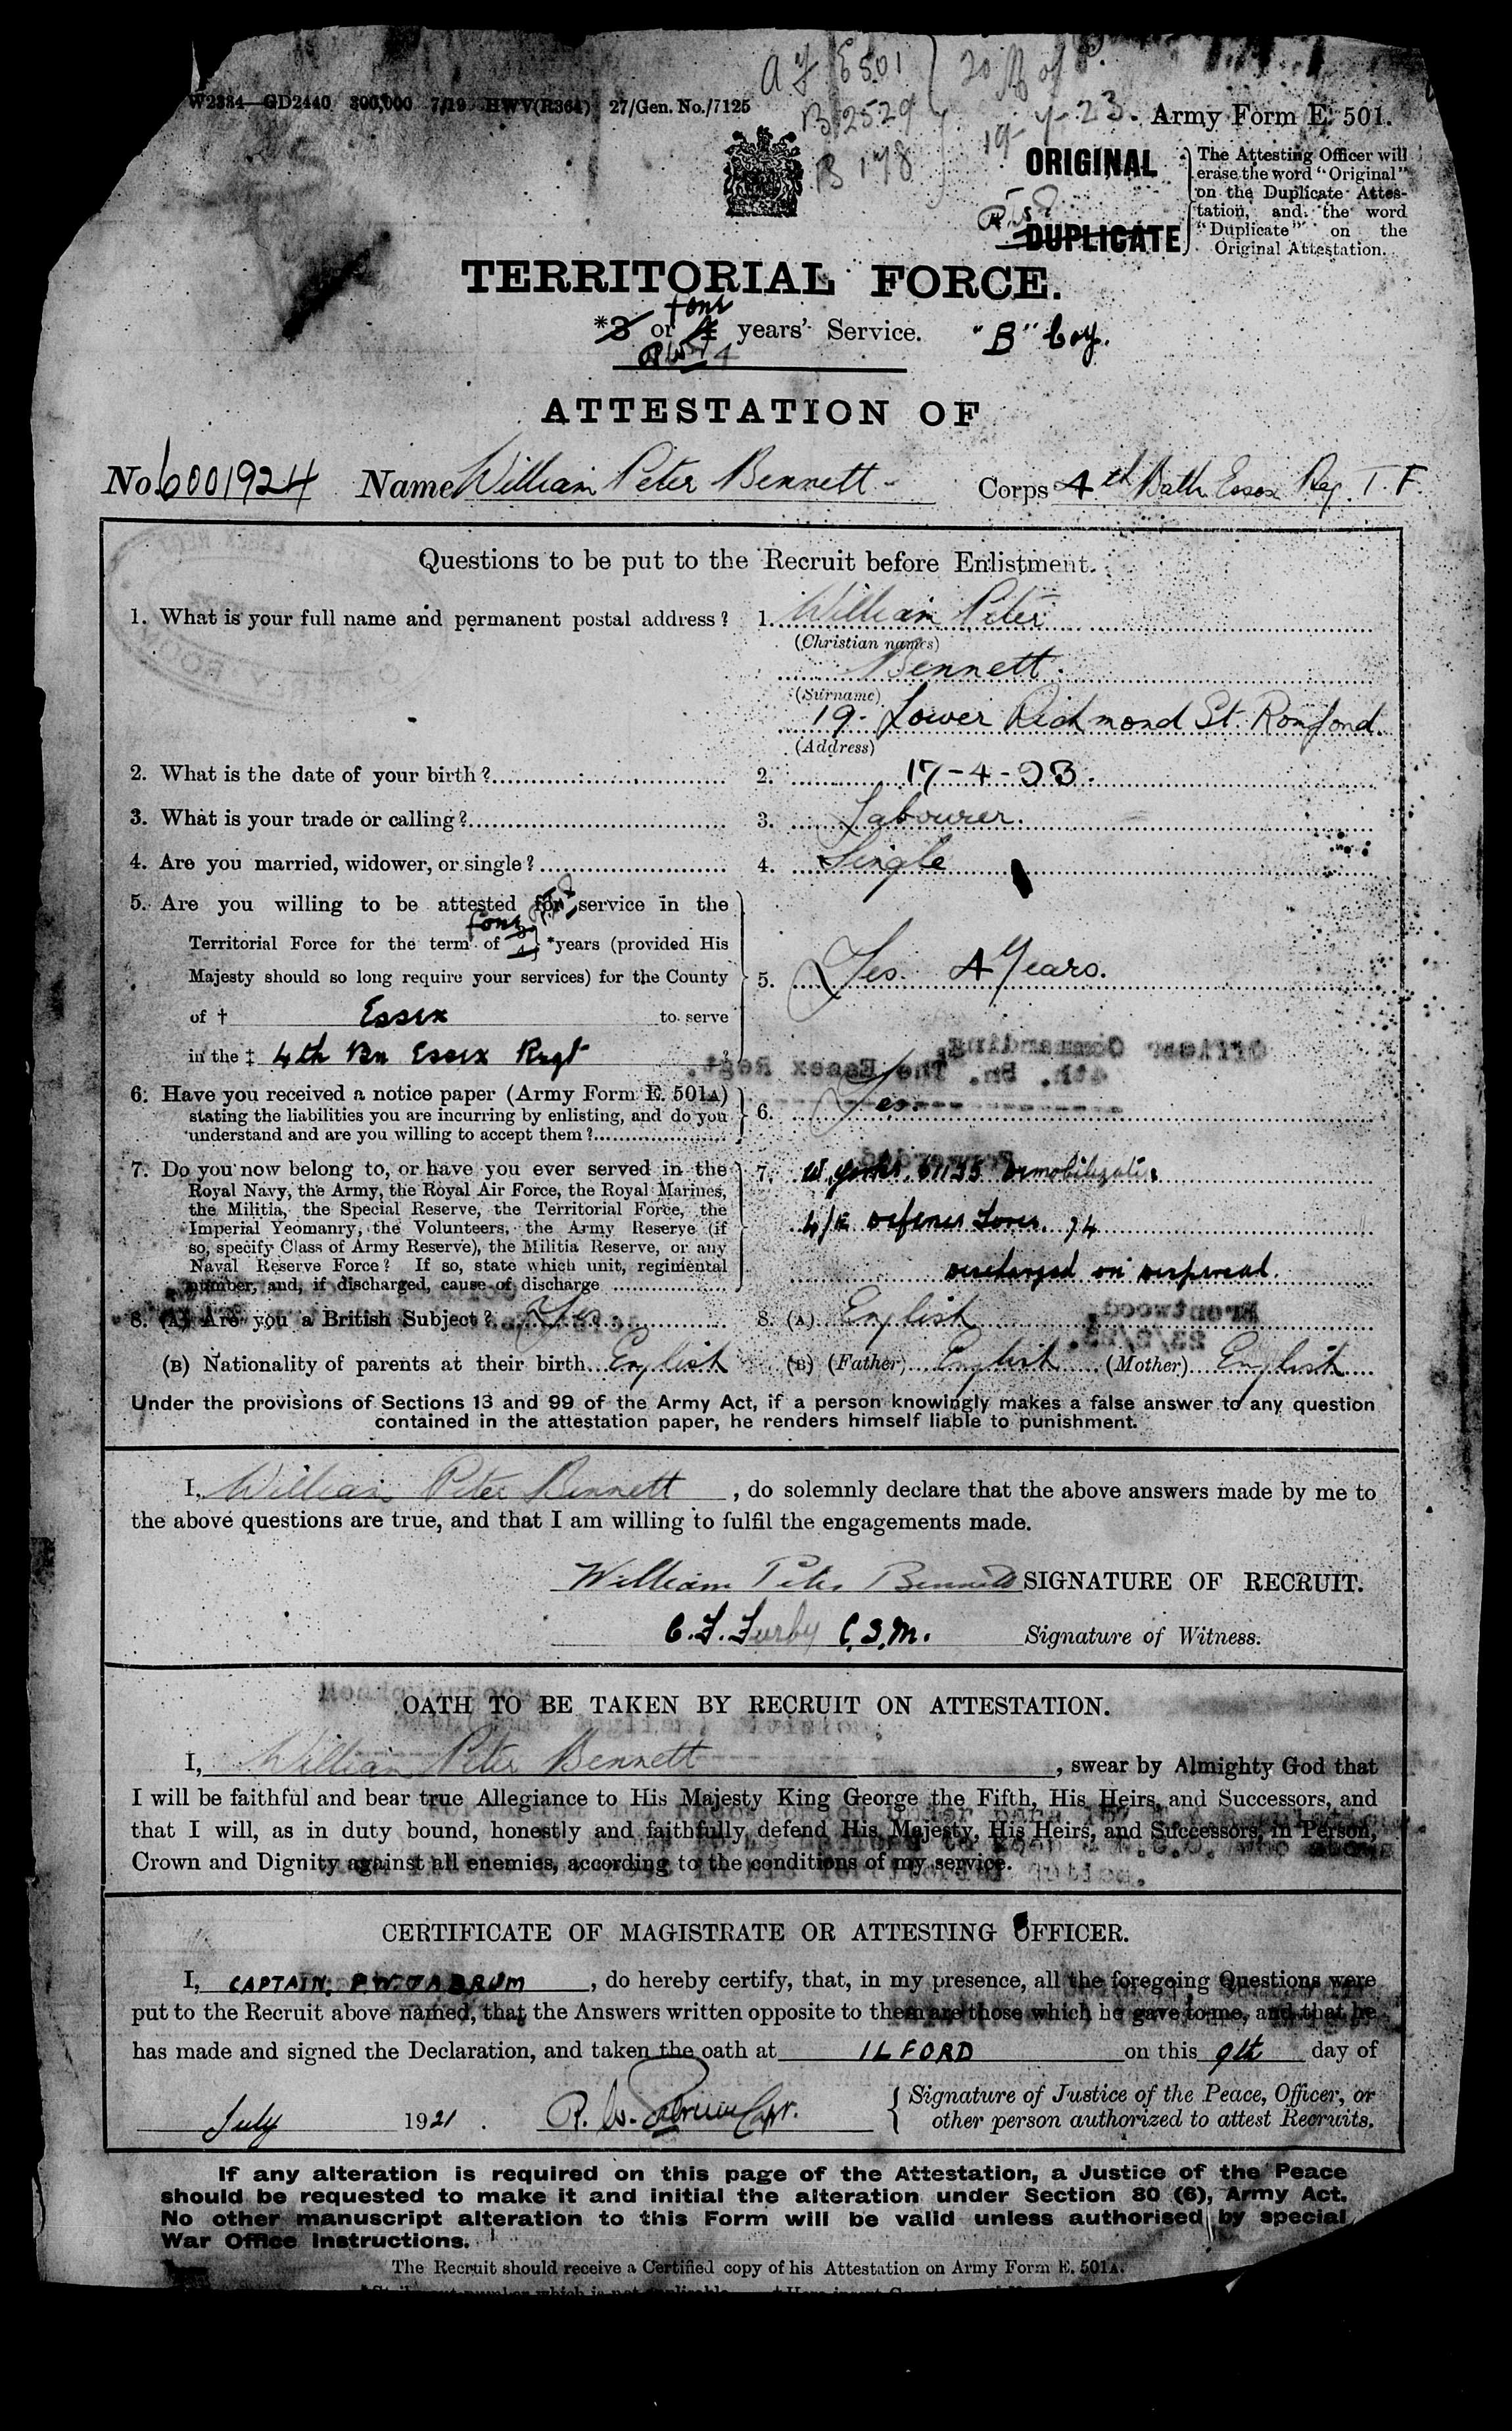 A F E501 20
W2384—GD2440 300,000 7/19 HWV(R364) 27/Gen. No./7125
B 2529 19-7-23. Army Form E. 501.
B 178
ORIGINAL
DUPLICATE
The Attesting Officer will
erase the word "Original"
on the Duplicate Attes-
tation, and the word
"Duplicate" on the
Original Attestation.
TERRITORIAL FORCE.
four
*3 or 4 years' Service. "B" Coy.
ATTESTATION OF
No. 6001924 Name William Peter Bennett Corps 4th Battn Essex Reg. T. F.
Questions to be put to the Recruit before Enlistment.
1. What is your full name and permanent postal address? 1. William Peter
(Christian names)
Bennett.
(Surname)
19. Lower Richmond St. Romford.
(Address)
2. What is the date of your birth? 2. 17-4-03.
3. What is your trade or calling? 3. Labourer.
4. Are you married, widower, or single? 4. Single
5. Are you willing to be attested for service in the
four
Territorial Force for the term of 3 4 *years (provided His
Majesty should so long require your services) for the County 5. Yes. 4 Years.
of † Essex to serve
in the ‡ 4th Bn Essex Regt ?
Officer Commanding,
4th. Bn. The Essex Regt.
6. Have you received a notice paper (Army Form E. 501A)
stating the liabilities you are incurring by enlisting, and do you 6. Yes.
understand and are you willing to accept them?
7. Do you now belong to, or have you ever served in the 7. W. Yorks. Demobilization
Royal Navy, the Army, the Royal Air Force, the Royal Marines,
the Militia, the Special Reserve, the Territorial Force, the
Imperial Yeomanry, the Volunteers, the Army Reserve (if 4/E Defence Force. 74
so, specify Class of Army Reserve), the Militia Reserve, or any
Naval Reserve Force? If so, state which unit, regimental
number, and, if discharged, cause of discharge discharged on dispersal.
8. (A) Are you a British Subject? Yes 8. (A) English
Brentwood,
(B) Nationality of parents at their birth English (B) (Father) English (Mother) English
Under the provisions of Sections 13 and 99 of the Army Act, if a person knowingly makes a false answer to any question
contained in the attestation paper, he renders himself liable to punishment.
I, William Peter Bennett, do solemnly declare that the above answers made by me to
the above questions are true, and that I am willing to fulfil the engagements made.
William Peter Bennett SIGNATURE OF RECRUIT.
C. F. Furby C.S.M. Signature of Witness.
OATH TO BE TAKEN BY RECRUIT ON ATTESTATION.
I, William Peter Bennett, swear by Almighty God that
I will be faithful and bear true Allegiance to His Majesty King George the Fifth, His Heirs, and Successors, and
that I will, as in duty bound, honestly and faithfully defend His Majesty, His Heirs, and Successors, in Person,
Crown and Dignity against all enemies, according to the conditions of my service.
CERTIFICATE OF MAGISTRATE OR ATTESTING OFFICER.
I, CAPTAIN. P.W. JABRUM, do hereby certify, that, in my presence, all the foregoing Questions were
put to the Recruit above named, that the Answers written opposite to them are those which he gave to me, and that he
has made and signed the Declaration, and taken the oath at ILFORD on this 9th day of
July 1921. P. W. Jabrum Capt.
Signature of Justice of the Peace, Officer, or
other person authorized to attest Recruits.
If any alteration is required on this page of the Attestation, a Justice of the Peace
should be requested to make it and initial the alteration under Section 80 (6), Army Act.
No other manuscript alteration to this Form will be valid unless authorised by special
War Office Instructions.
The Recruit should receive a Certified copy of his Attestation on Army Form E. 501A.